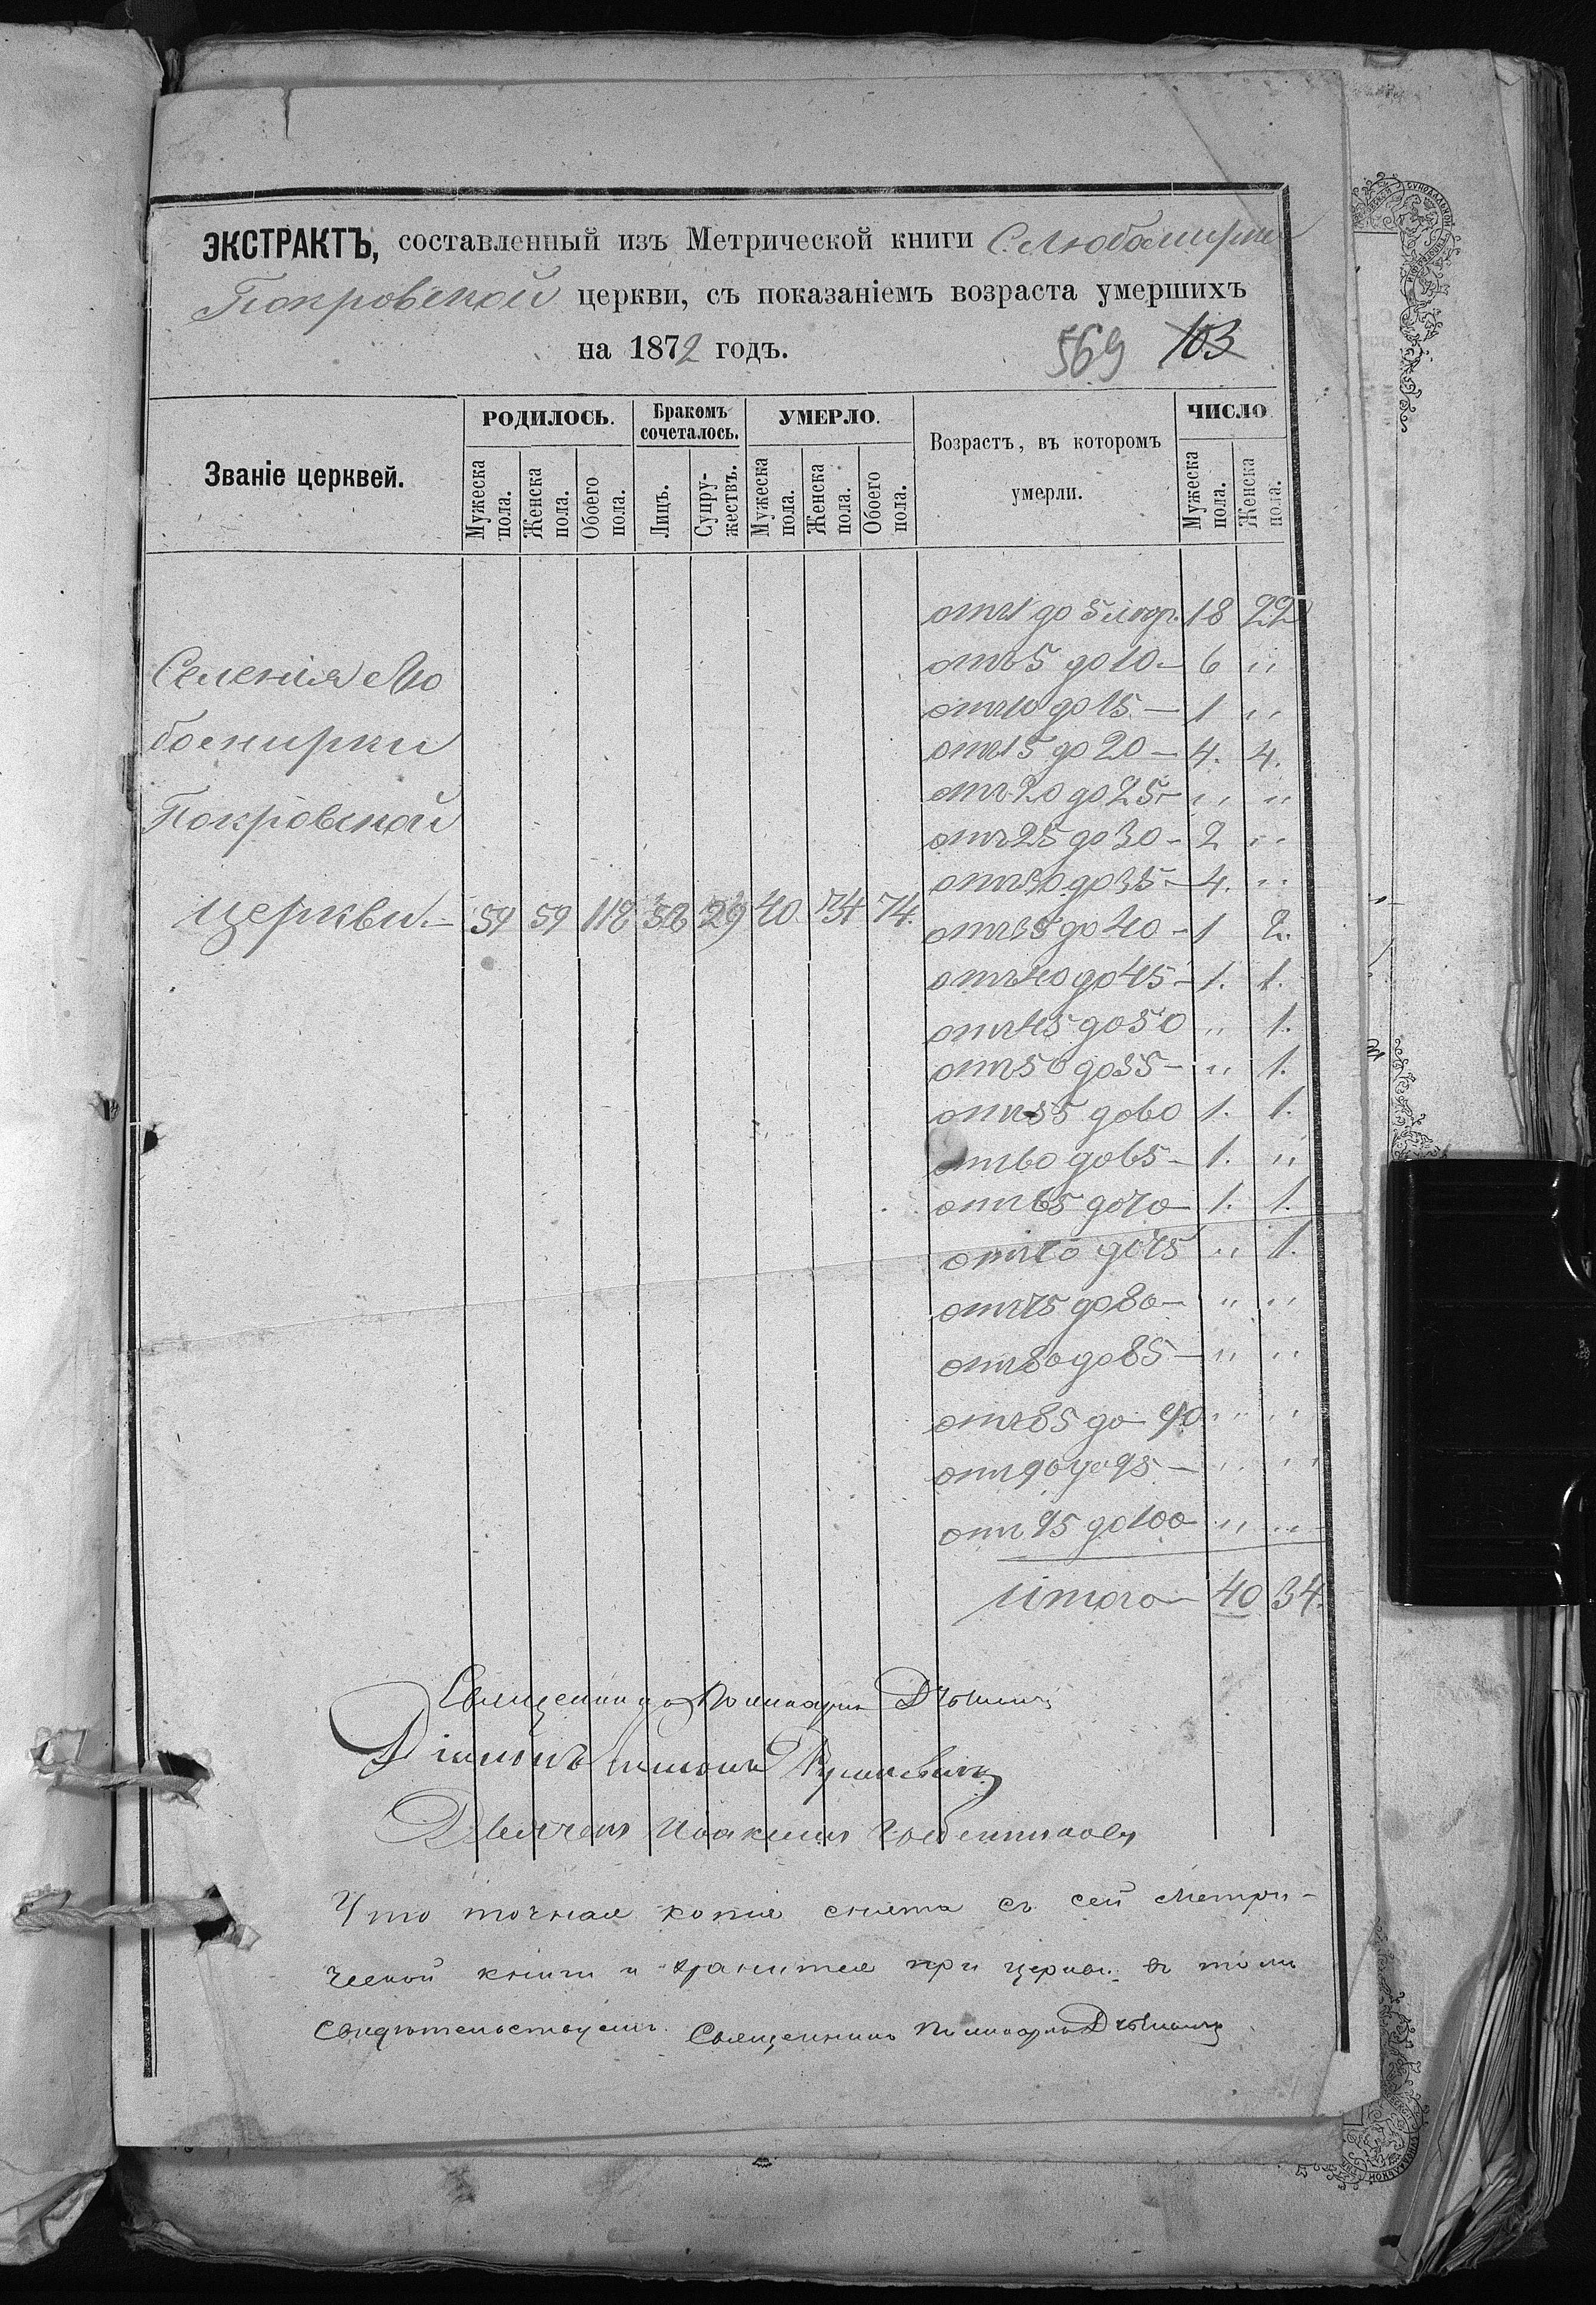 ЭКСТРАКТЪ, составленный изъ Метрической книги С. Любомирки
Покровской церкви, съ показаніемъ возраста умершихъ
на 1872 годъ.
569 103
Званіе церквей.
РОДИЛОСЬ.
Бракомъ сочеталось.
УМЕРЛО.
Возрастъ, въ которомъ умерли.
ЧИСЛО
Мужеска пола.
Женска пола.
Обоего пола.
Лицъ.
Супружествъ.
Мужеска пола.
Женска пола.
Обоего пола.
Мужеска пола.
Женска пола.
Селенія Лю
бомирки
Покровской
церкви. – 59 59 118 58 29 40 34 74.
отъ 1 до 5 18 22
отъ 5 до 10 – 6 "
отъ 10 до 15 – 1 "
отъ 15 до 20 – 4. 4.
отъ 20 до 25 – " "
отъ 25 до 30 – 2 "
отъ 30 до 35 – 4. "
отъ 35 до 40 – 1 2.
отъ 40 до 45 – 1. 1.
отъ 45 до 50 " 1.
отъ 50 до 55 – " 1.
отъ 55 до 60 1. 1.
отъ 60 до 65 – 1. "
отъ 65 до 70 – 1. 1.
отъ 70 до 75 " 1.
отъ 75 до 80 – " "
отъ 80 до 85 – " "
отъ 85 до 90. " "
отъ 90 до 95 – " "
отъ 95 до 100 – " "
Итого – 40 34.
Священникъ
Діаконъ
Дьячекъ Иоакимъ
Что точная копія снята съ сей метри-
ческой книги и хранится при церкви, въ томъ
свидѣтельствуемъ. Священникъ